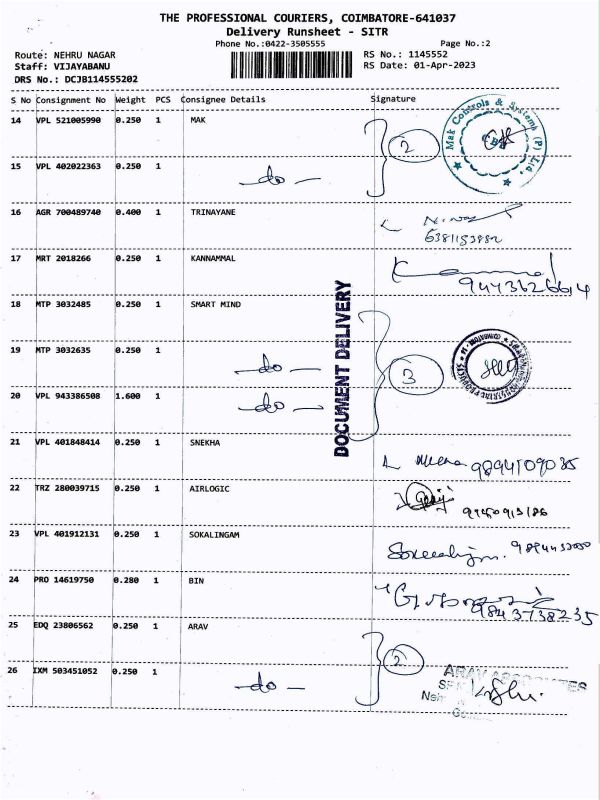 THE PROFESSIONAL COURIERS, COIMBATORE-641037
Delivery Runsheet - SITR
Phone No.:0422-3505555 Page No.:2
Route: NEHRU NAGAR RS No.: 1145552
Staff: VIJAYABANU RS Date: 01-Apr-2023
DRS No.: DCJB114555202
S No Consignment No Weight PCS Consignee Details Signature
14 VPL 521005990 0.250 1 MAK
2
Mak Controls & Systems (P) Ltd.
15 VPL 402022363 0.250 1
do
16 AGR 700489740 0.400 1 TRINAYANE
17 MRT 2018266 0.250 1 KANNAMMAL
9443626614
18 MTP 3032485 0.250 1 SMART MIND
DOCUMENT DELIVERY
19 MTP 3032635 0.250 1
do
3
20 VPL 943386508 1.600 1
do
21 VPL 401848414 0.250 1 SNEKHA
9894109085
22 TRZ 280039715 0.250 1 AIRLOGIC
23 VPL 401912131 0.250 1 SOKALINGAM
24 PRO 14619750 0.280 1 BIN
9843738235
25 EDQ 23806562 0.250 1 ARAV
2
26 IXM 503451052 0.250 1
do
ARAV ASSOCIATES